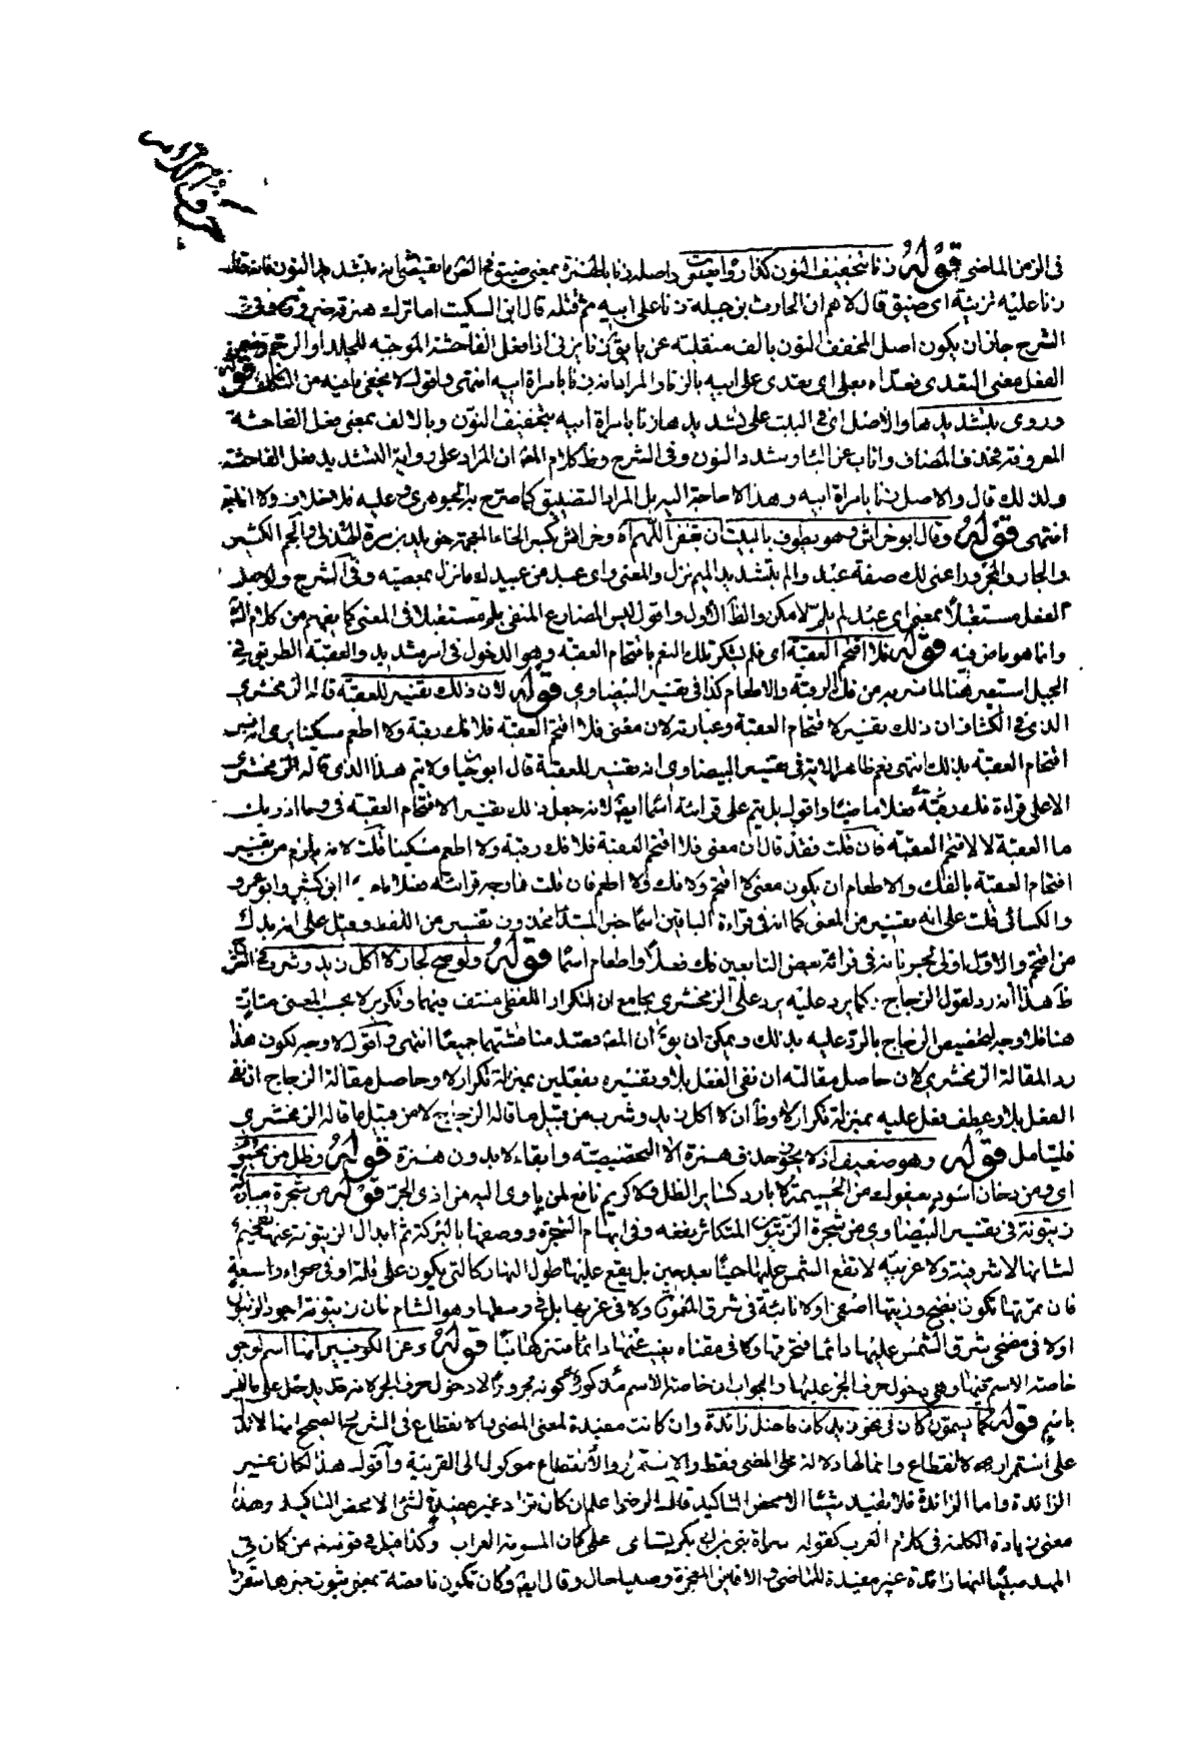 في الزمن الماضي قوله زنا بتخفيف النون كذا رواه يعقوب واصله زنا بالهمزة بمعنى ضيق
زنا عليه تزنية اي ضيق قال لاهم ان الحارث بن جبله زنا على ابيه ثم قتله قال ابن السكيت انما ترك همزه ضرورة وفي
الشرح جاز ان يكون اصل المخفف النون بالف منقلبة عن ياء زنا يزني اذا فعل الفاحشة الموجبة للجلد او الرجم
الفعل معنى التعدي فعداه بعلى اي تعدى على ابيه بالزنا والمراد انه زنا بامراة ابيه انتهى واقول لا يخفى ما فيه من التكلف قوله
وروى بتشديدها والاصل اي في البيت على تشديدها زنا بامراة ابيه بتخفيف النون وبالالف بمعنى فعل الفاحشة
المعروفة فحذف المضاف واناب عن الباء وشدد النون وفي الشرح وظ كلام المص ان المراد على رواية التشديد فعل الفاحشة
ولذلك قال والاصل زنا بامراة ابيه وهذا لا حاجة اليه بل المراد التضييق كما صرح به الجوهري وعليه فلا حذف ولا انابة
انتهى قوله وقال ابو خراش وهو يطوف بالبيت ان تغفر اللهم آه وخراش بكسر الخاء المعجمة خويلد بن مرة الهذلي والجم الكثير
والجار والمجرور اعني لك صفة عبد والم بتشديد الميم نزل والمعنى واي عبد من عبيدك ما نزل بمعصية وفي الشرح ولو جعل
الفعل مستقبلا بمعنى اي عبد لم يلم لامكن والظ الاول واقول ليس المضارع المنفي بلم مستقبلا في المعنى كما يفهم من كلام
وانما هو ماض فيه قوله فلا اقتحم العقبة اي فلم يشكر تلك النعم باقتحام العقبة وهو الدخول في امر شديد والعقبة الطريق في
الجبل استعير هنا لما فسر به من فك الرقبة والاطعام كذا في تفسير البيضاوي قوله لان ذلك تفسير للعقبة قاله الزمخشري
الذي في الكشاف ان ذلك تفسير لاقتحام العقبة وعبارته لان معنى فلا اقتحم العقبة فلا فك رقبة ولا اطعم مسكينا يرى انه فسر
اقتحام العقبة بذلك انتهى نعم ظاهر الاية في تفسير البيضاوي انه تفسير للعقبة قال ابو حيا ولا يتم هذا الذي قاله الزمخشري
الا على قراءة فك رقبة فعلا ماضيا واقول بل يتم على قراءته اسما ايض لانه جعل ذلك تفسير الاقتحام العقبة في وما ادريك
ما العقبة لا لاقتحم العقبة فان قلت فقد قال ان معنى فلا اقتحم العقبة فلا فك رقبة ولا اطعم مسكينا قلت لانه يلزم من تفسير
اقتحام العقبة بالفك والاطعام ان يكون معنى لا اقتحم ولا فك ولا اطعم فان قلت فما وجه قراءته فعلا ابن كثير وابو عمرو
والكسائي قلت على انه تفسير من المعنى كما انه في قراءة الباقين اسما خبر المبتدأ محذوف تفسير من اللفظ وقيل على انه بدل
من اقتحم والاول اولى لجريانه في قراءة بعض التابعين فك فعلا واطعام اسما قوله ولو صح لجاز لا اكل زيد وشرب في الشرح
ظ هذا انه رد لقول الزجاج كما يرد عليه يرد على الزمخشري بجامع ان التكرار اللفظي منتف فيهما وتكرير لا بحسب المعنى متات
هنا فلا وجه لتخصيص الزجاج بالرد عليه بذلك ويمكن ان يق ان المص قصد مناقشتهما جميعا انتهى واقول لا وجه لكون هذا
رد المقالة الزمخشري لان حاصل مقالته ان نفي الفعل بلا وتفسيره بفعلين بمنزلة تكرار لا وحاصل مقالة الزجاج ان نفي
الفعل بلا وعطف فعل عليه بمنزلة تكرار لا وظ ان لا اكل زيد وشرب من قبيل ما قاله الزجاج لا من قبيل ما قاله الزمخشري
فليتامل قوله وهو ضعيف اذ لا يجوز حذف همزة الا التحضيضية وابقاء لا بدون همزة قوله وظل من يحموم
اي ومن دخان اسود يعفول من الحممة لا بارد كساير الظل ولا كريم نافع لمن ياوى اليه من اذى الحر قوله من شجرة مباركة
زيتونة في تفسير البيضاوي من شجرة الزيتون المتكاثر نفعه وفي ابهام الشجرة ووصفها بالبركة ثم ابدال الزيتونة عنها تفخيم
لشانها لا شرقية ولا غربية لا تقع الشمس عليها حينا بعد حين بل يقع عليها طول النهار كالتي يكون على قلة او في صحراء واسعة
فان ثمرتها تكون نضج وزيتها اصفى او لا نابتة في شرق المعمورة ولا في غربها بل في وسطها وهو الشام فان زيتونة اجود الزيتون
او لا في مضحى تشرق الشمس عليها دائما فتحرقها ولا في مقناه يغيب عنها دائما فتتركها نيا قوله وعن الكوفيين انها اسم لوجو
خاصة الاسم فيها وهي دخول حرف الجر عليها والجواب ان خاصة الاسم مذكور كونه مجرورا لا دخول حرف الجر لانه قد يدخل على ما ليس
باسم قوله كما يسمون كان في نحو زيد كان فاضل زائدة وان كانت مفيدة لمعنى المضي والانقطاع في الشرح الصحيح انها لا تدل
على استمرار ولا انقطاع وانما لها دلالة على المضي فقط والاستمرار والانقطاع موكول الى القرينة واقول هذا لكان غير
الزائدة واما الزائدة فلا تفيد شيئا الا محض التاكيد قال الرضي اعلم ان كان تزاد غير مفيدة لشئ الا محض التاكيد وهذا
معنى زيادة الكلمة في كلام العرب كقوله سراة بني ابي بكر تسامى على كان المسومة العراب وكذا قيل في قوله من كان في
المهد صبيا انها زائدة غير مفيدة للماضي والا فاين المعجزة وصبيا حال وقال ايض وكان تكون ناقصة بمعنى ثبوت خبرها مقرونا